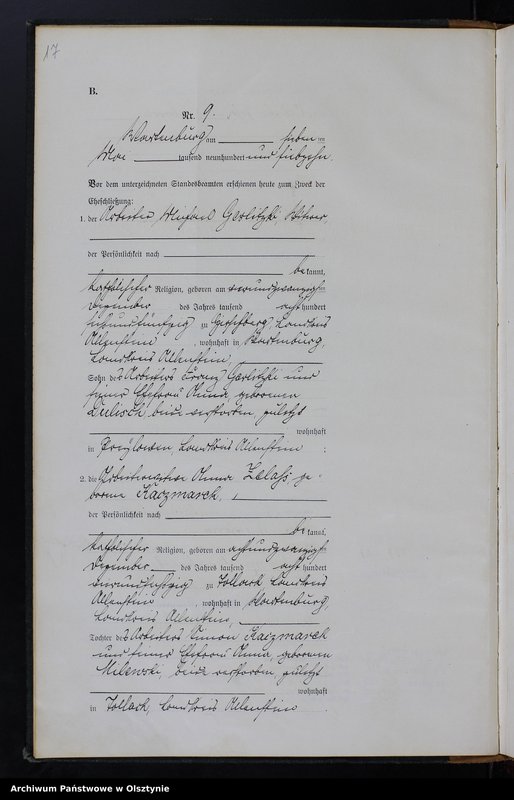 17
B.
Nr. 9.
Wartenburg am sieben ten
Mai tausend neunhundert und fünfzehn.
Vor dem unterzeichneten Standesbeamten erschienen heute zum Zweck der
Eheschließung:
1. der Arbeiter, Michael Gerlitzki, Witwer,
der Persönlichkeit nach
be kannt,
katholischer Religion, geboren am
Dezember des Jahres tausend acht hundert
zu Landkreis
Allenstein, wohnhaft in Wartenburg,
Landkreis Allenstein,
Sohn des Arbeiters Franz Gerlitzki und
seiner Ehefrau Anna, geborenen
beide verstorben, zuletzt
wohnhaft
in Landkreis Allenstein ;
2. die Arbeiterwitwe Anna Zelaß ge-
borene Kaczmarek,
der Persönlichkeit nach
be kannt,
katholischer Religion, geboren am achtundzwanzigsten
Dezember des Jahres tausend acht hundert
zu Tollack Landkreis
Allenstein, wohnhaft in Wartenburg,
Landkreis Allenstein,
Tochter des Arbeiters Simon Kaczmarek
und seiner Ehefrau Anna, geborenen
Milewski, beide verstorben, zuletzt
wohnhaft
in Tollack, Landkreis Allenstein
Archiwum Państwowe w Olsztynie